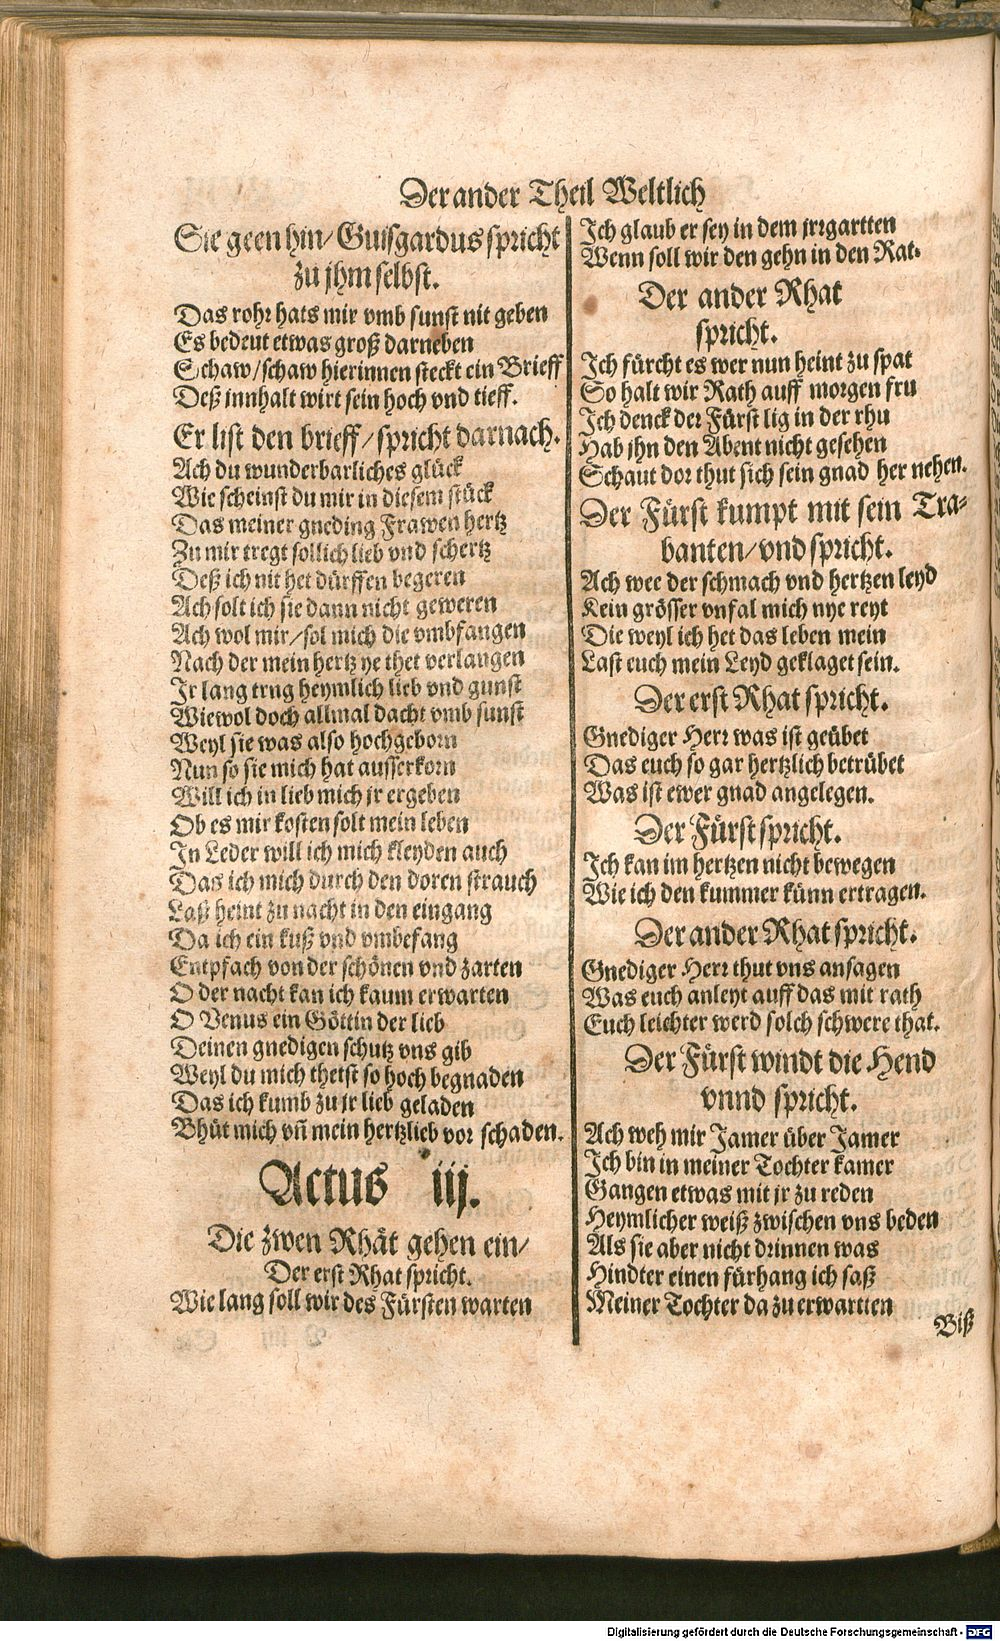 Der ander Theil Weltlich
Sie geen hin/ Guisgardus spricht
zu jhm selbst.
Das rohr hats mir vmb sunst nit geben
Es bedeut etwas groß darneben
Schaw/schaw hierinnen steckt ein Brieff
Deß innhalt wirt sein hoch vnd tieff.
Er list den brieff/spricht darnach.
Ach du wunderbarliches glück
Wie scheinst du mir in diesem stück
Das meiner gneding Frawen hertz
Zu mir tregt sollich lieb vnd schertz
Deß ich nit het dürffen begeren
Ach solt ich sie dann nicht geweren
Ach wol mir/sol mich die vmbfangen
Nach der mein hertz ye thet verlangen
Jr lang trug heymlich lieb vnd gunst
Wiewol doch allmal dacht vmb sunst
Weyl sie was also hochgeborn
Nun so sie mich hat ausserkorn
Will ich in lieb mich jr ergeben
Ob es mir kosten solt mein leben
In Leder will ich mich kleyden auch
Das ich mich durch den doren strauch
Laß heint zu nacht in den eingang
Da ich ein kuß vnd vmbefang
Entpfach von der schönen vnd zarten
O der nacht kan ich kaum erwarten
O Venus ein Göttin der lieb
Deinen gnedigen schutz vns gib
Weyl du mich thetst so hoch begnaden
Das ich kumb zu jr lieb geladen
Bhüt mich vñ mein hertzlieb vor schaden.
Actus iij.
Die zwen Rhät gehen ein/
Der erst Rhat spricht.
Wie lang soll wir des Fürsten warten
Ich glaub er sey in dem jrrgartten
Wenn soll wir den gehn in den Rat.
Der ander Rhat
spricht.
Ich fürcht es wer nun heint zu spat
So halt wir Rath auff morgen fru
Ich denck der Fürst lig in der rhu
Hab jhn den Abent nicht gesehen
Schaut dor thut sich sein gnad her nehen.
Der Fürst kumpt mit sein Tra-
banten/vnd spricht.
Ach wee der schmach vnd hertzen leyd
Kein grösser vnfal mich nye reyt
Die weyl ich het das leben mein
Last euch mein Leyd geklaget sein.
Der erst Rhat spricht.
Gnediger Herr was ist geübet
Das euch so gar hertzlich betrübet
Was ist ewer gnad angelegen.
Der Fürst spricht.
Ich kan im hertzen nicht bewegen
Wie ich den kummer künn ertragen.
Der ander Rhat spricht.
Gnediger Herr thut vns ansagen
Was euch anleyt auff das mit rath
Euch leichter werd solch schwere that.
Der Fürst windt die Hend
vnnd spricht.
Ach weh mir Jamer über Jamer
Ich bin in meiner Tochter kamer
Gangen etwas mit jr zu reden
Heymlicher weiß zwischen vns beden
Als sie aber nicht drinnen was
Hindter einen fürhang ich saß
Meiner Tochter da zu erwartten
Biß
Digitalisierung gefördert durch die Deutsche Forschungsgemeinschaft - DFG